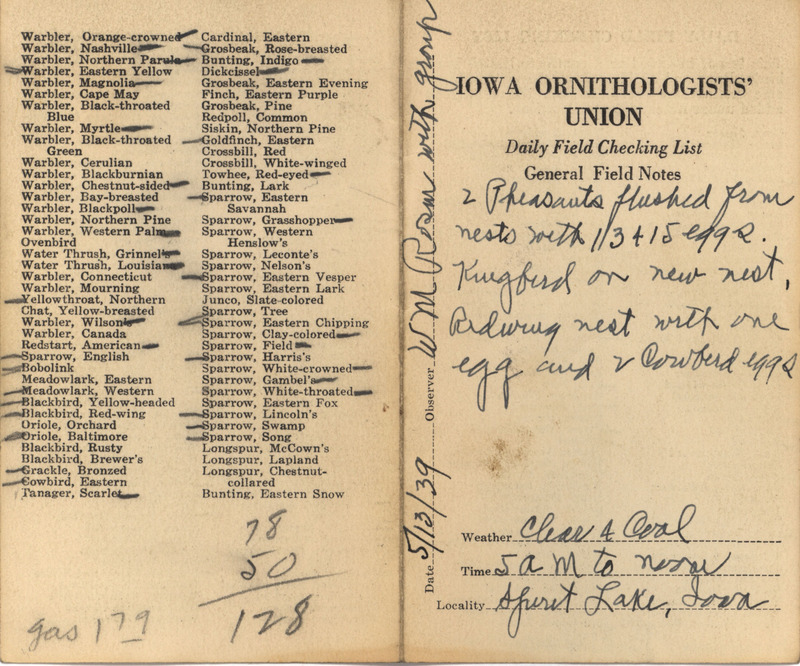 Warbler, Orange-crowned
Warbler, Nashville
Warbler, Northern Parula
Warbler, Eastern Yellow
Warbler, Magnolia
Warbler, Cape May
Warbler, Black-throated
Blue
Warbler, Myrtle
Warbler, Black-throated
Green
Warbler, Cerulian
Warbler, Blackburnian
Warbler, Chestnut-sided
Warbler, Bay-breasted
Warbler, Blackpoll
Warbler, Northern Pine
Warbler, Western Palm
Ovenbird
Water Thrush, Grinnel's
Water Thrush, Louisiana
Warbler, Connecticut
Warbler, Mourning
Yellowthroat, Northern
Chat, Yellow-breasted
Warbler, Wilson's
Warbler, Canada
Redstart, American
Sparrow, English
Bobolink
Meadowlark, Eastern
Meadowlark, Western
Blackbird, Yellow-headed
Blackbird, Red-wing
Oriole, Orchard
Oriole, Baltimore
Blackbird, Rusty
Blackbird, Brewer's
Grackle, Bronzed
Cowbird, Eastern
Tanager, Scarlet
Cardinal, Eastern
Grosbeak, Rose-breasted
Bunting, Indigo
Dickcissel
Grosbeak, Eastern Evening
Finch, Eastern Purple
Grosbeak, Pine
Redpoll, Common
Siskin, Northern Pine
Goldfinch, Eastern
Crossbill, Red
Crossbill, White-winged
Towhee, Red-eyed
Bunting, Lark
Sparrow, Eastern
Savannah
Sparrow, Grasshopper
Sparrow, Western
Henslow's
Sparrow, Leconte's
Sparrow, Nelson's
Sparrow, Eastern Vesper
Sparrow, Eastern Lark
Junco, Slate-colored
Sparrow, Tree
Sparrow, Eastern Chipping
Sparrow, Clay-colored
Sparrow, Field
Sparrow, Harris's
Sparrow, White-crowned
Sparrow, Gambel's
Sparrow, White-throated
Sparrow, Eastern Fox
Sparrow, Lincoln's
Sparrow, Swamp
Sparrow, Song
Longspur, McCown's
Longspur, Lapland
Longspur, Chestnut-
collared
Bunting, Eastern Snow
78
50
128
gas 179
Date 5/13/39 Observer W M Rosen with group
IOWA ORNITHOLOGISTS'
UNION
Daily Field Checking List
General Field Notes
2 Pheasants flushed from
nests with 13 & 15 eggs.
Kingbird on new nest.
Redwing nest with one
egg and 2 Cowbird eggs
Weather Clear & Cool
Time 5 A M to noon
Locality Spirit Lake, Iowa